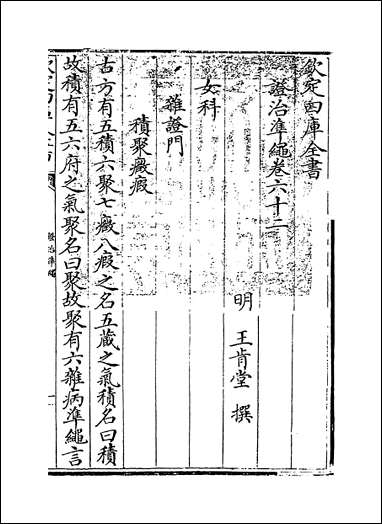 欽定四庫全書
證治準繩卷六十二
明 王肯堂 撰
女科
雜證門
積聚癥瘕
古方有五積六聚七癥八瘕之名五藏之氣積名曰積
故積有五六府之氣聚名曰聚故聚有六雜病準繩言
證治準繩
一